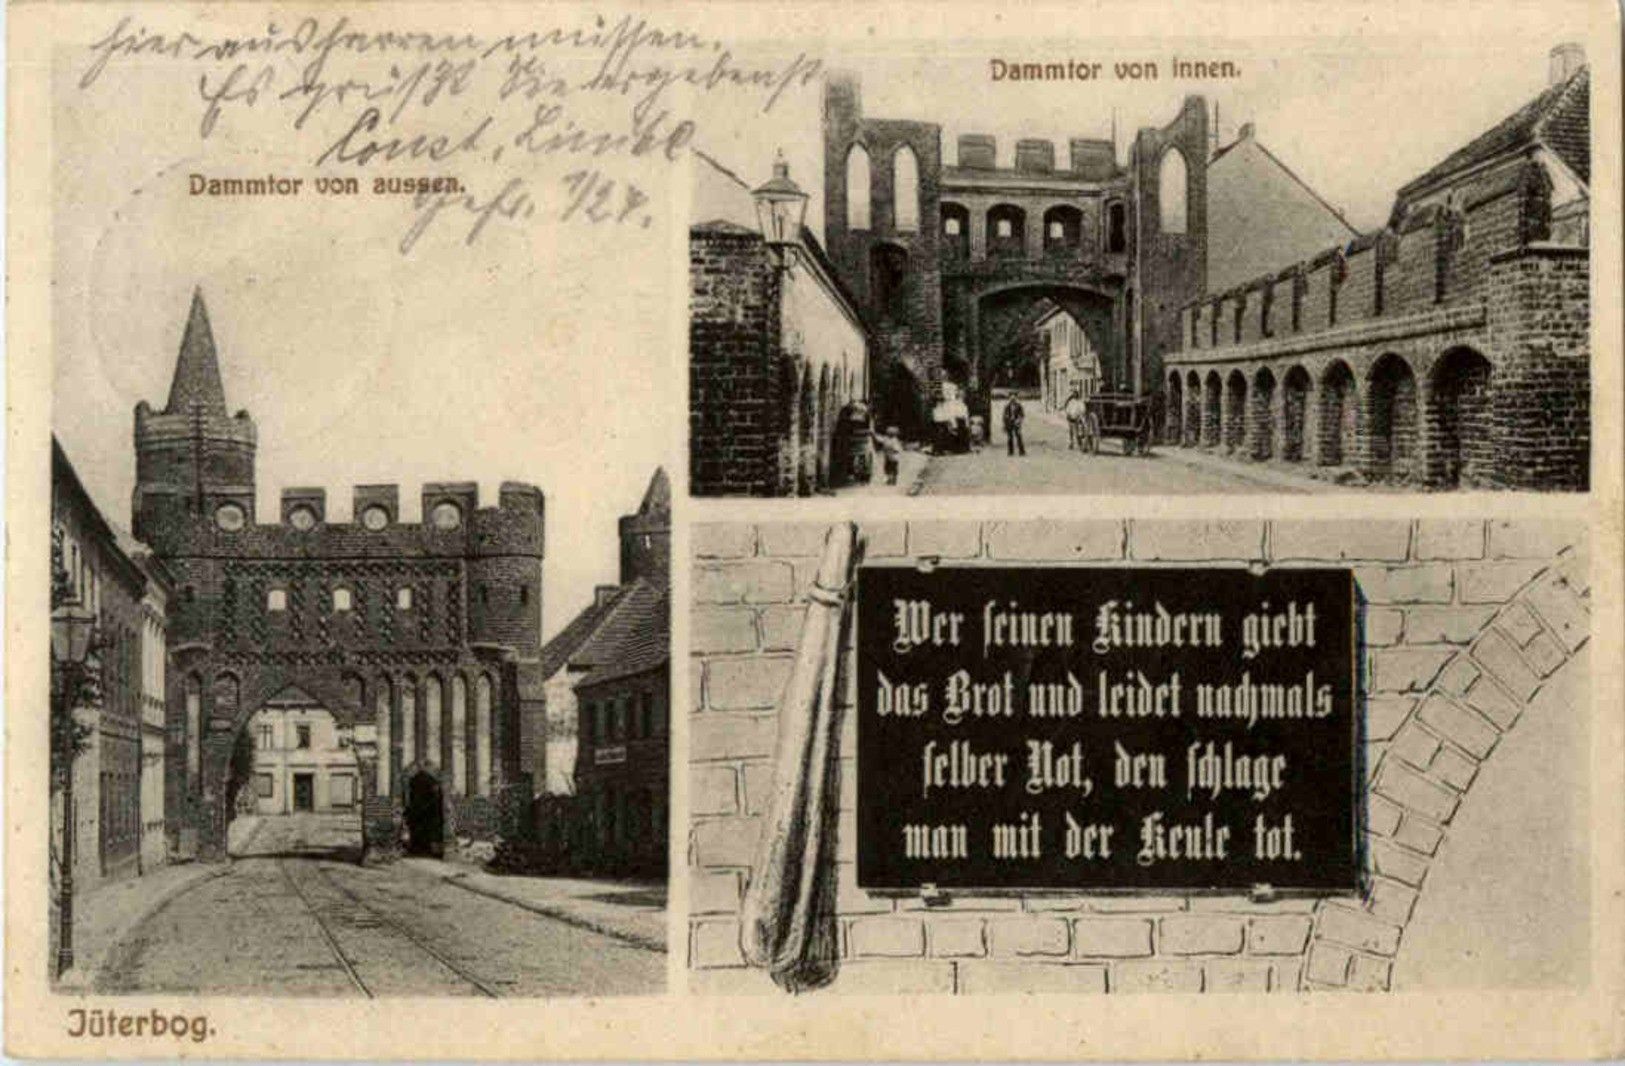 hier ausharren müssen.
Es grüßt Sie ergebenst
Const.
Gefr. 1/27.
Dammtor von innen.
Dammtor von aussen.
Wer seinen Kindern giebt
das Brot und leidet nachmals
selber Not, den schlage
man mit der Keule tot.
Jüterbog.